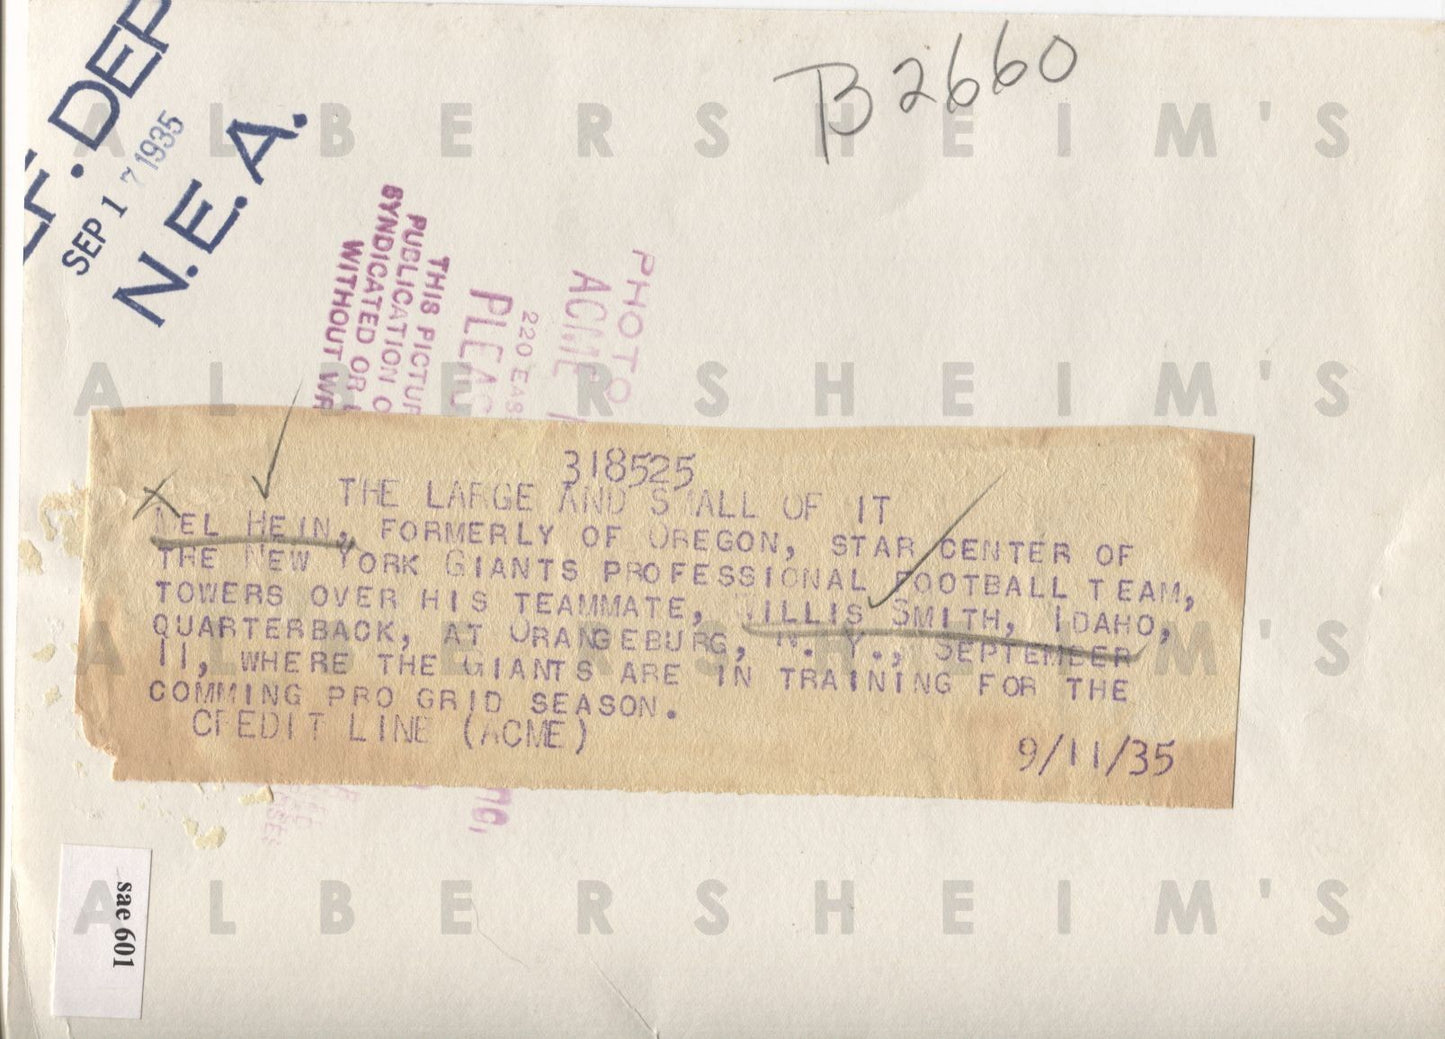 B2660
EF. DEP
SEP 17 1935
N.E.A.
THIS PICTUR
PUBLICATION O
SYNDICATED OR
WITHOUT WR
PLEAS
220 EAS
ACME
PHOTO
318525
THE LARGE AND SMALL OF IT
MEL HEIN, FORMERLY OF OREGON, STAR CENTER OF
THE NEW YORK GIANTS PROFESSIONAL FOOTBALL TEAM,
TOWERS OVER HIS TEAMMATE, WILLIS SMITH, IDAHO,
QUARTERBACK, AT ORANGEBURG, N. Y., SEPTEMBER
11, WHERE THE GIANTS ARE IN TRAINING FOR THE
COMMING PRO GRID SEASON.
CREDIT LINE (ACME)
9/11/35
sae 601
ALBERSHEIM'S
ALBERSHEIM'S
ALBERSHEIM'S
ALBERSHEIM'S